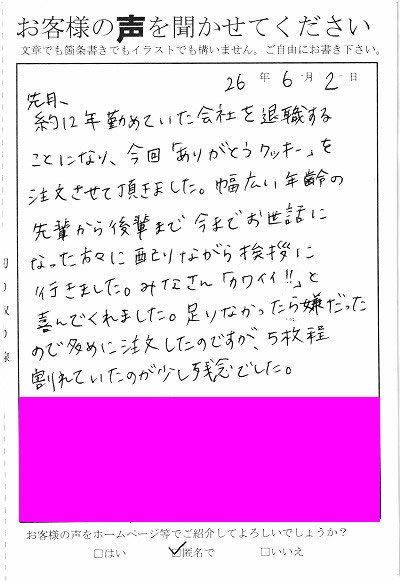 お客様の声を聞かせてください
文章でも箇条書きでもイラストでも構いません。ご自由にお書き下さい。
26年6月2日
先月、
約12年勤めていた会社を退職する
ことになり、今回「ありがとうクッキー」を
注文させて頂きました。幅広い年齢の
先輩から後輩まで今までお世話に
なった方々に配りながら挨拶に
行きました。みなさん「カワイイ!!」と
喜んでくれました。足りなかったら嫌だった
ので多めに注文したのですが、5枚程
割れていたのが少し残念でした。
お客様の声をホームページ等でご紹介してよろしいでしょうか?
□はい ☑匿名で □いいえ